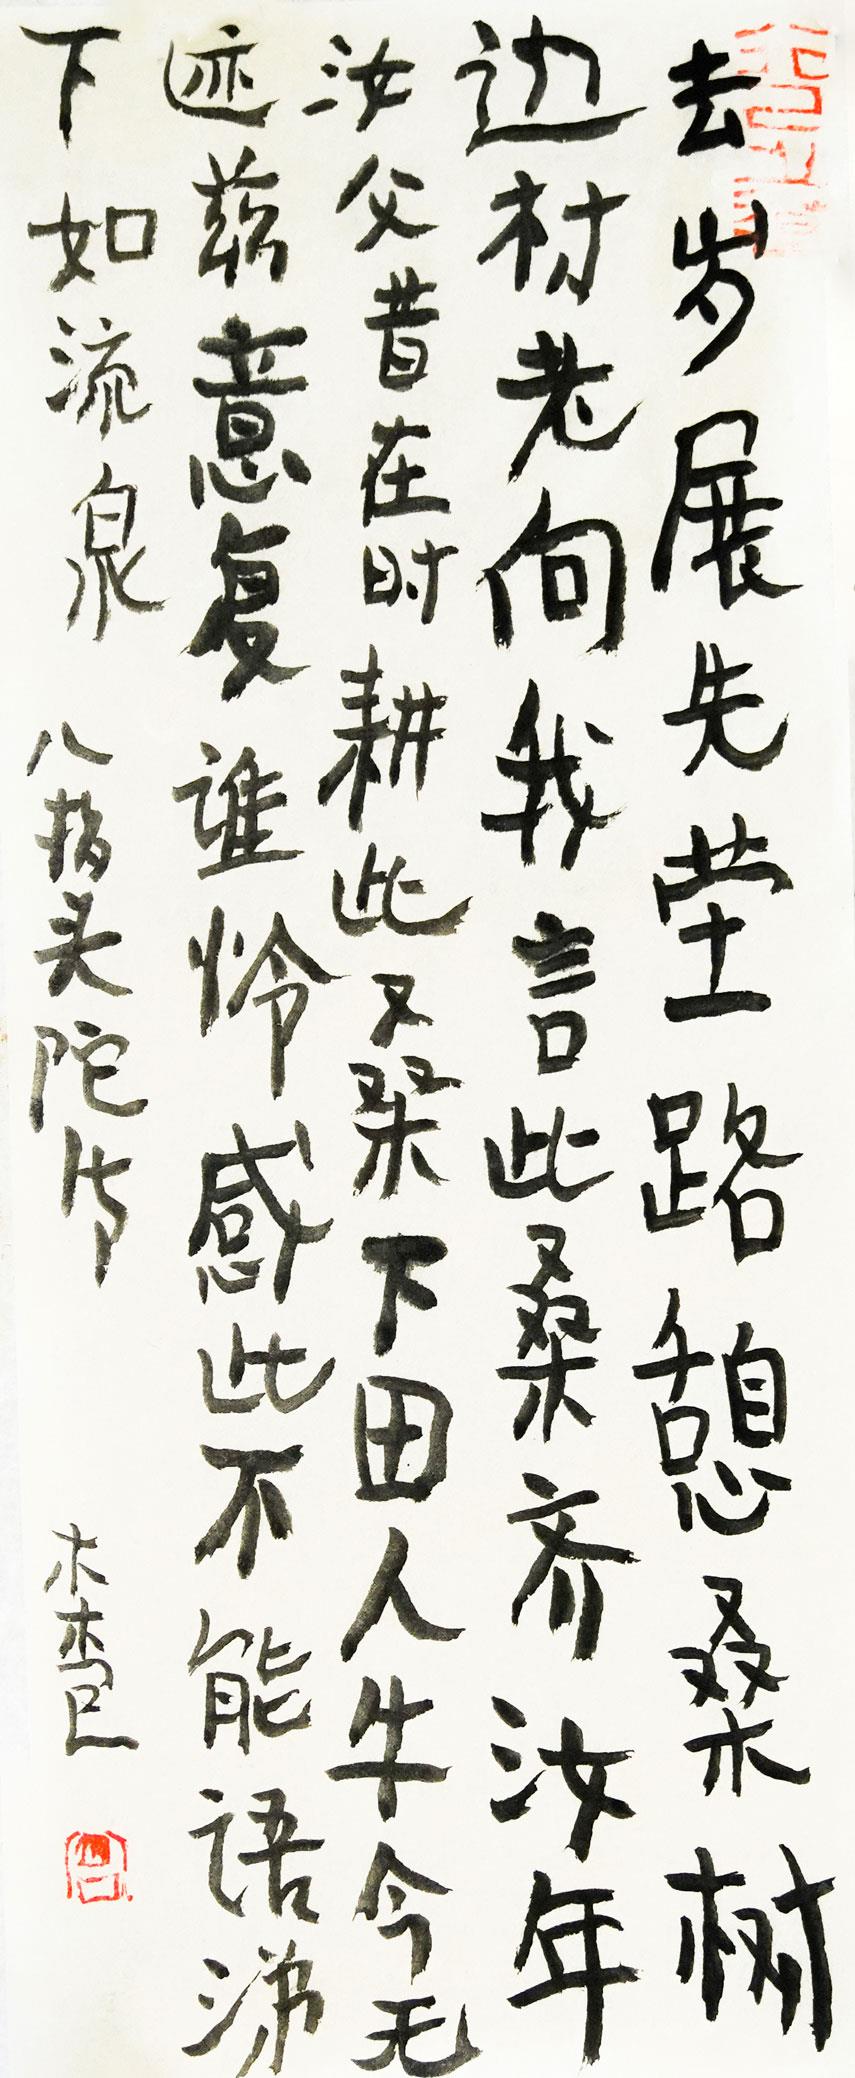 去岁展先茔路憩桑树
边村老向我言此桑齐汝年
汝父昔在时耕此桑下田人牛今无
迹兹意复谁怜感此不能语涕
下如流泉 八指头陀诗